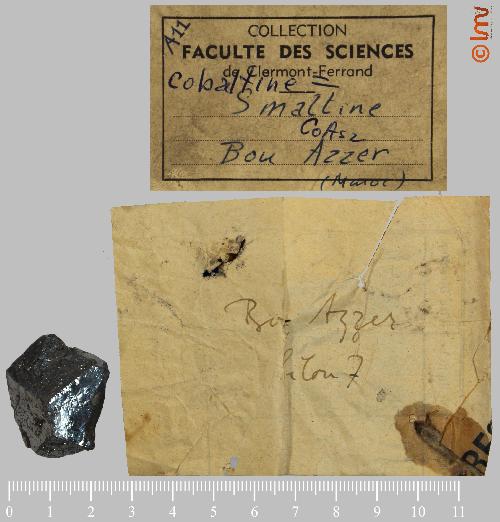 A11
COLLECTION
FACULTE DES SCIENCES
de Clermont-Ferrand
Cobaltine =
Smaltine
CoAs2
Bou Azzer
(Maroc)
© lmv
Bou Azzer
filon 7
RES
0 1 2 3 4 5 6 7 8 9 10 11